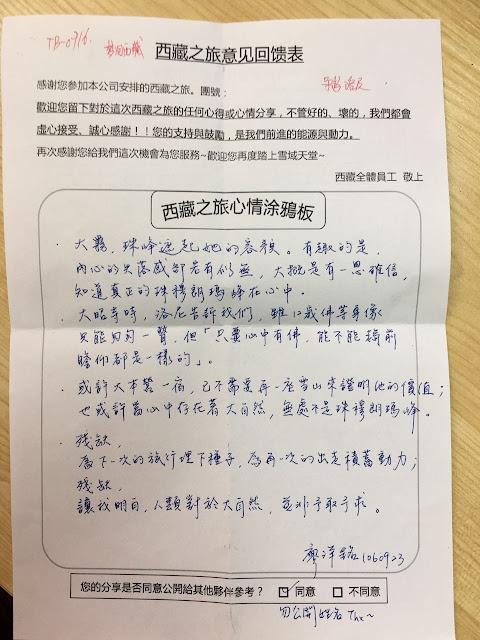 TB-0916
夢回西藏
西藏之旅意见回馈表
感谢您參加本公司安排的西藏之旅。團號：
歡迎您留下對於這次西藏之旅的任何心得或心情分享，不管好的、壞的，我們都會
虛心接受、誠心感謝！！您的支持與鼓勵，是我們前進的能源與動力。
再次感謝您給我們這次機會為您服務~歡迎您再度踏上雪域天堂~
西藏全體員工 敬上
西藏之旅心情涂鴉板
· 大霧，珠峰遮起她的容顏。有趣的是，
內心的失落感卻若有似無，大概是有一思確信，
知道真正的珠穆朗瑪峰在心中。
· 大昭寺時，洛尼告訴我們，雖12歲佛等身像
只能匆匆一瞥，但「只要心中有佛，能不能趨前
瞻仰都是一樣的」。
· 或許大本營一宿，已不需要再一座雪山來證明他的價值；
也或許當心中存在著大自然，無處不是珠穆朗瑪峰。
· 殘缺，
為下一次的旅行埋下種子，為再一次的出走積蓄動力；
殘缺，
讓我明白，人類對於大自然，並非予取予求。
廖洋銘 1060923
您的分享是否同意公開給其他夥伴參考？ ☑ 同意 □ 不同意
勿公開姓名 Thx~